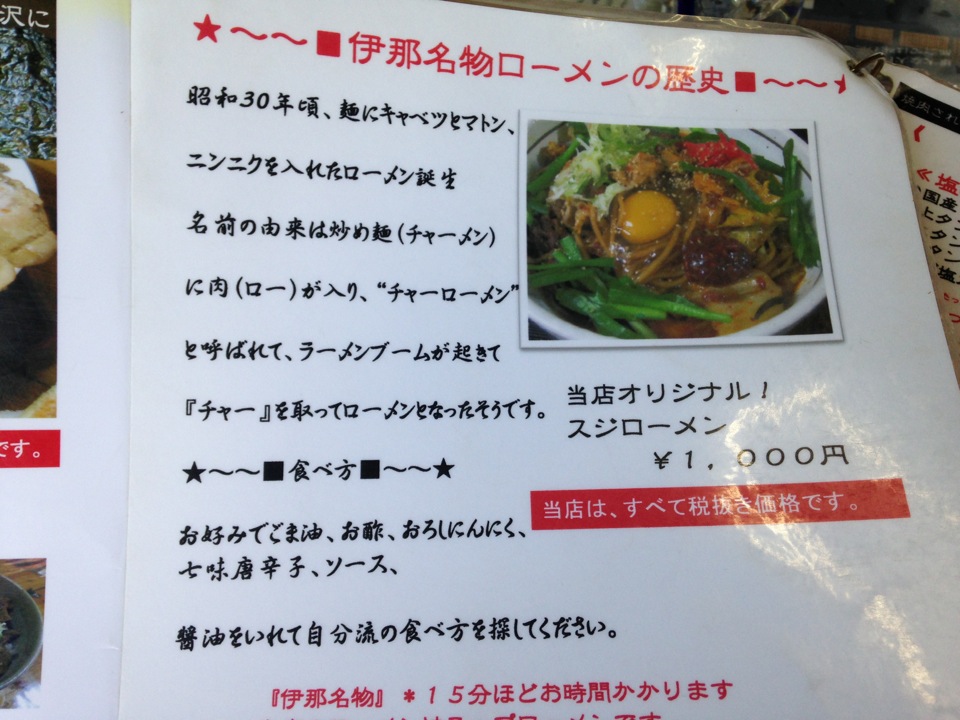 沢に
★～～■伊那名物ローメンの歴史■～～★
昭和３０年頃、麺にキャベツとマトン、
ニンニクを入れたローメン誕生
名前の由来は炒め麺(チャーメン)
に肉(ロー)が入り、“チャーローメン”
と呼ばれて、ラーメンブームが起きて
『チャー』を取ってローメンとなったそうです。
当店オリジナル！
スジローメン
￥１，０００円
当店は、すべて税抜き価格です。
★～～■食べ方■～～★
お好みでごま油、お酢、おろしにんにく、
七味唐辛子、ソース、
醤油をいれて自分流の食べ方を探してください。
『伊那名物』＊１５分ほどお時間かかります
です。
≪塩
国産